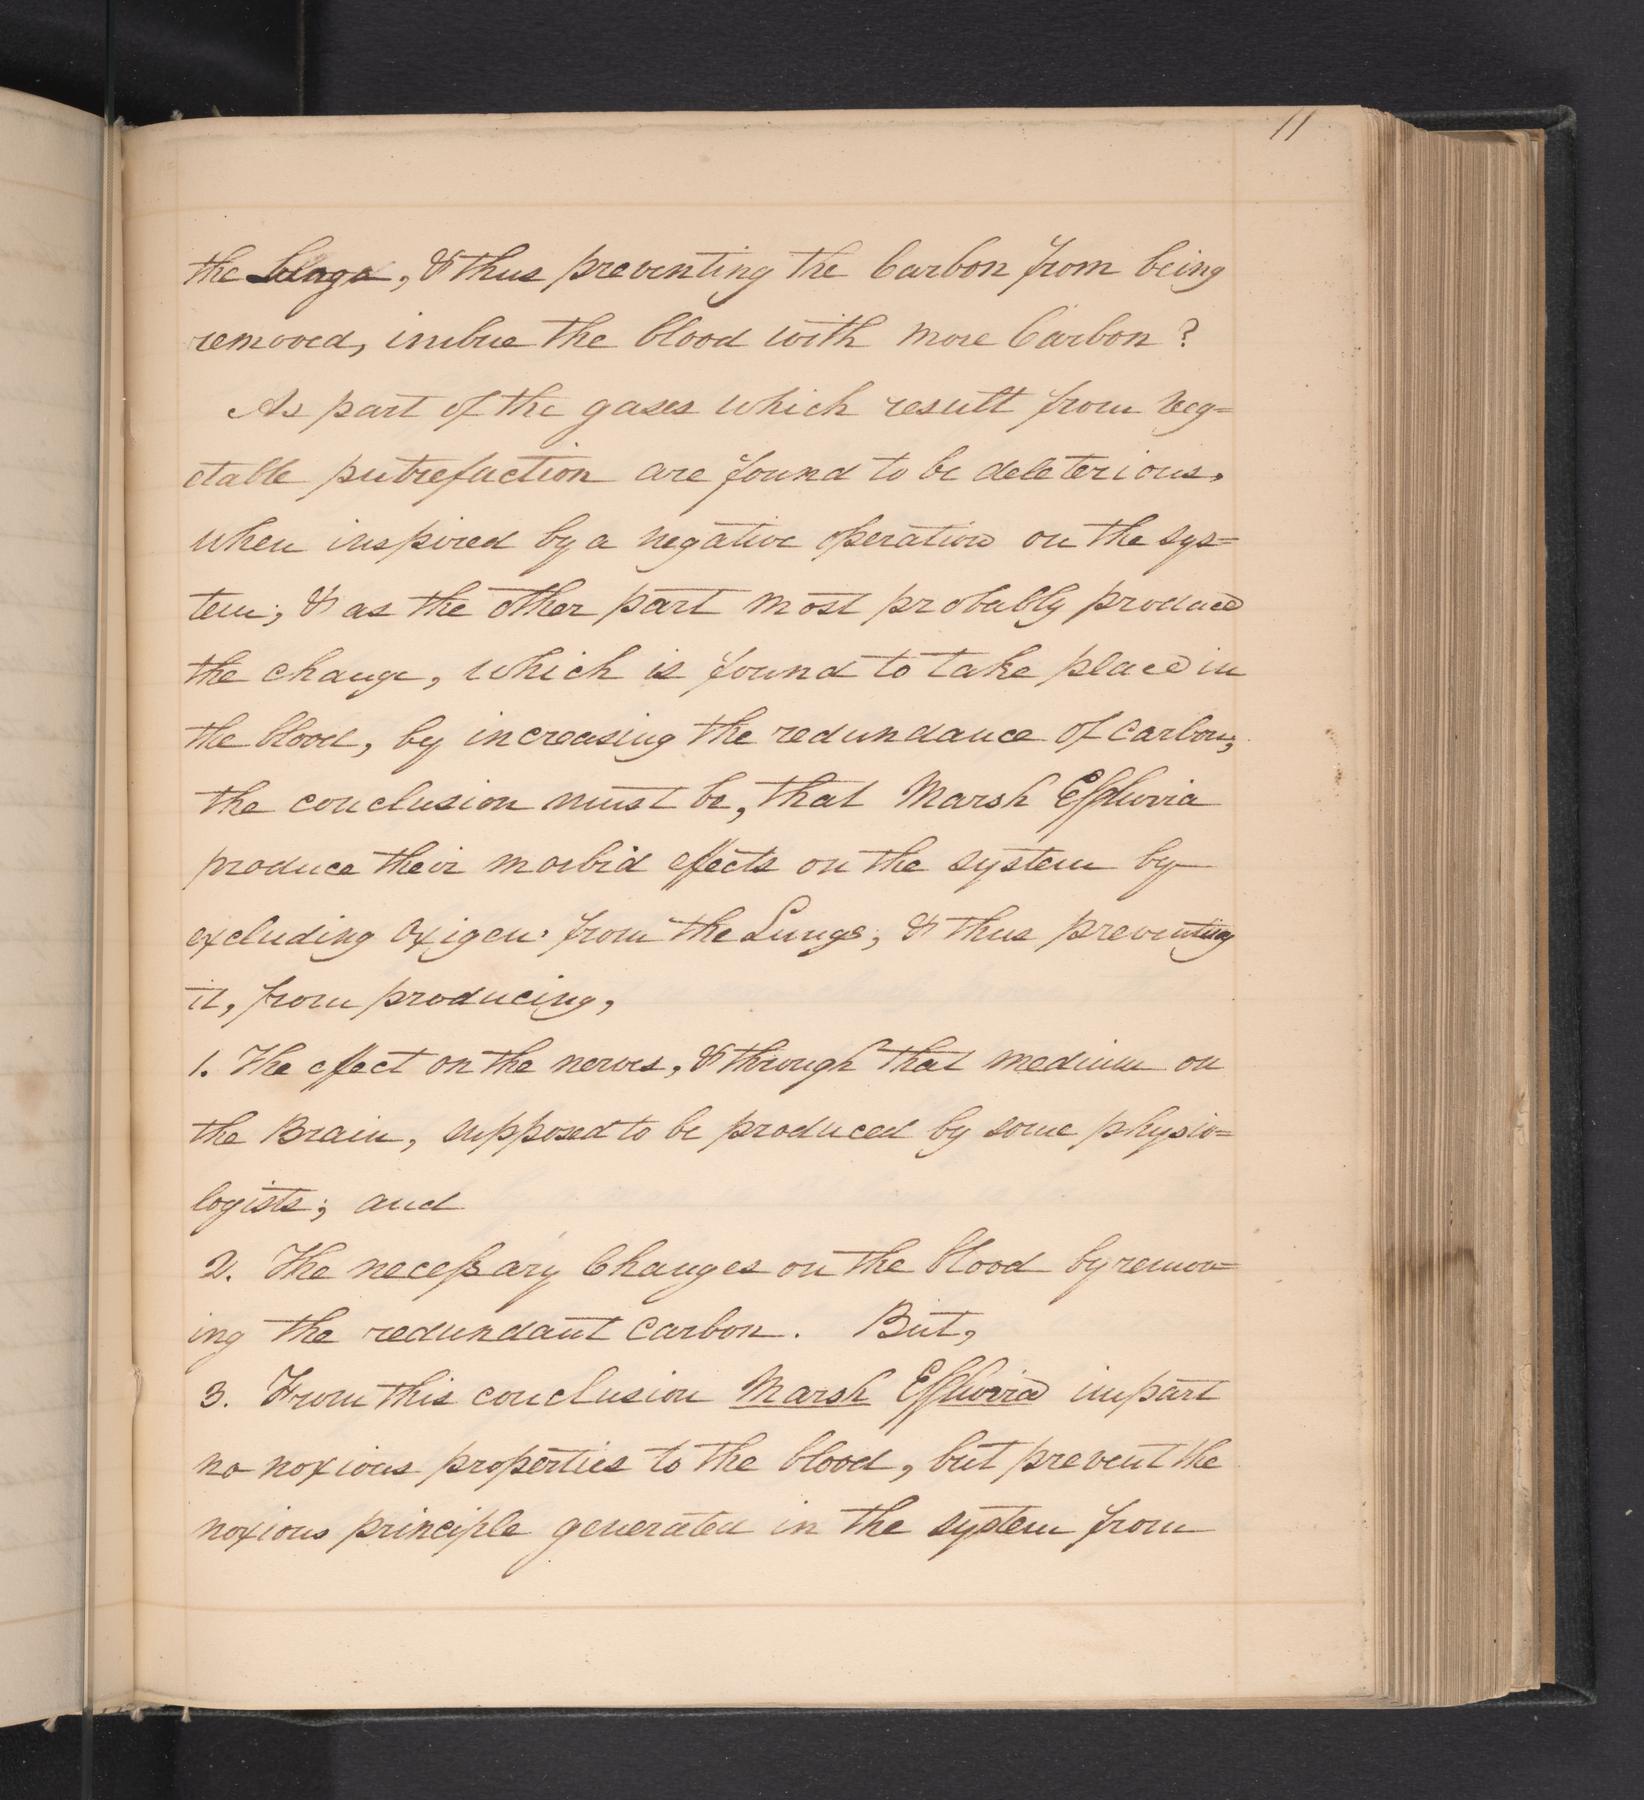 11
the Lungs, & thus preventing the Carbon from being
removed, imbue the blood with more Carbon?
As part of the gases which result from veg=
etable putrefaction are found to be deleterious,
when inspired by a negative operation on the sys=
tem; & as the other part most probably produce
the change, which is found to take place in
the blood, by increasing the redundance of carbon;
the conclusion must be, that Marsh Effluvia
produce their morbid effects on the system by
excluding Oxigen from the Lungs, & thus preventing
it, from producing,
1. The effect on the nerves, & through that medium on
the Brain, supposed to be produced by some physio=
logists; and
2. The necessary Changes on the blood by remov=
ing the redundant carbon. But,
3. From this conclusion Marsh Effluvia impart
no noxious properties to the blood, but prevent the
noxious principle generated in the system from